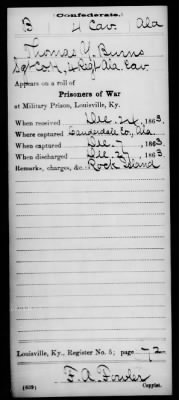 Confederate.
B 4 Cav. Ala
Thomas Y. Burns
Sgt Co. H, 4 Regt Ala. Cav.
Appears on a roll of
Prisoners of War
at Military Prison, Louisville, Ky.
When received Dec. 24, 1863
Where captured Lauderdale Co, Ala.
When captured Dec. 7, 1863
When discharged Dec. 27, 1863
Remarks, charges, &c. Rock Island
Louisville, Ky., Register No. 5; page 72
F. A. Fowler
(639) Copyist.